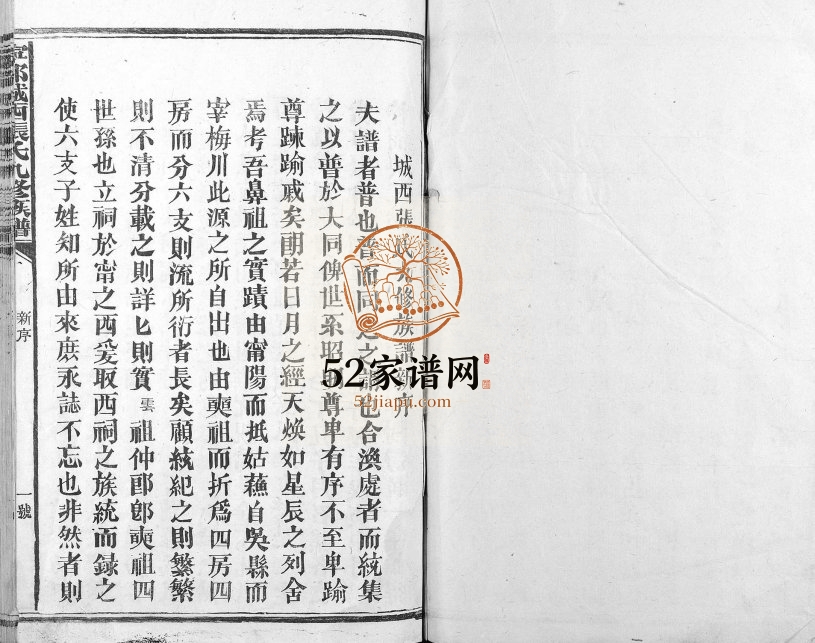 城西張氏九修族譜新序
夫譜者普也普而同之之謂也合渙處者而統集
之以普於大同俾世系昭明尊卑有序不至卑踰
尊踈踰戚矣朙若日月之經天煥如星辰之列舍
焉考吾鼻祖之實蹟由甯陽而抵姑蘓自吳縣而
宰梅川此源之所自出也由奭祖而折爲四房四
房而分六支則流所衍者長矣顧統紀之則繁
則不清分載之則詳詳則實雲祖仲郎奭祖四
世孫也立祠於甯之西爰取西祠之族統而録之
使六支子姓知所由來庶永誌不忘也非然者則
寧都城西張氏九修族譜
新序
一號
52家谱网
52jiapu.com